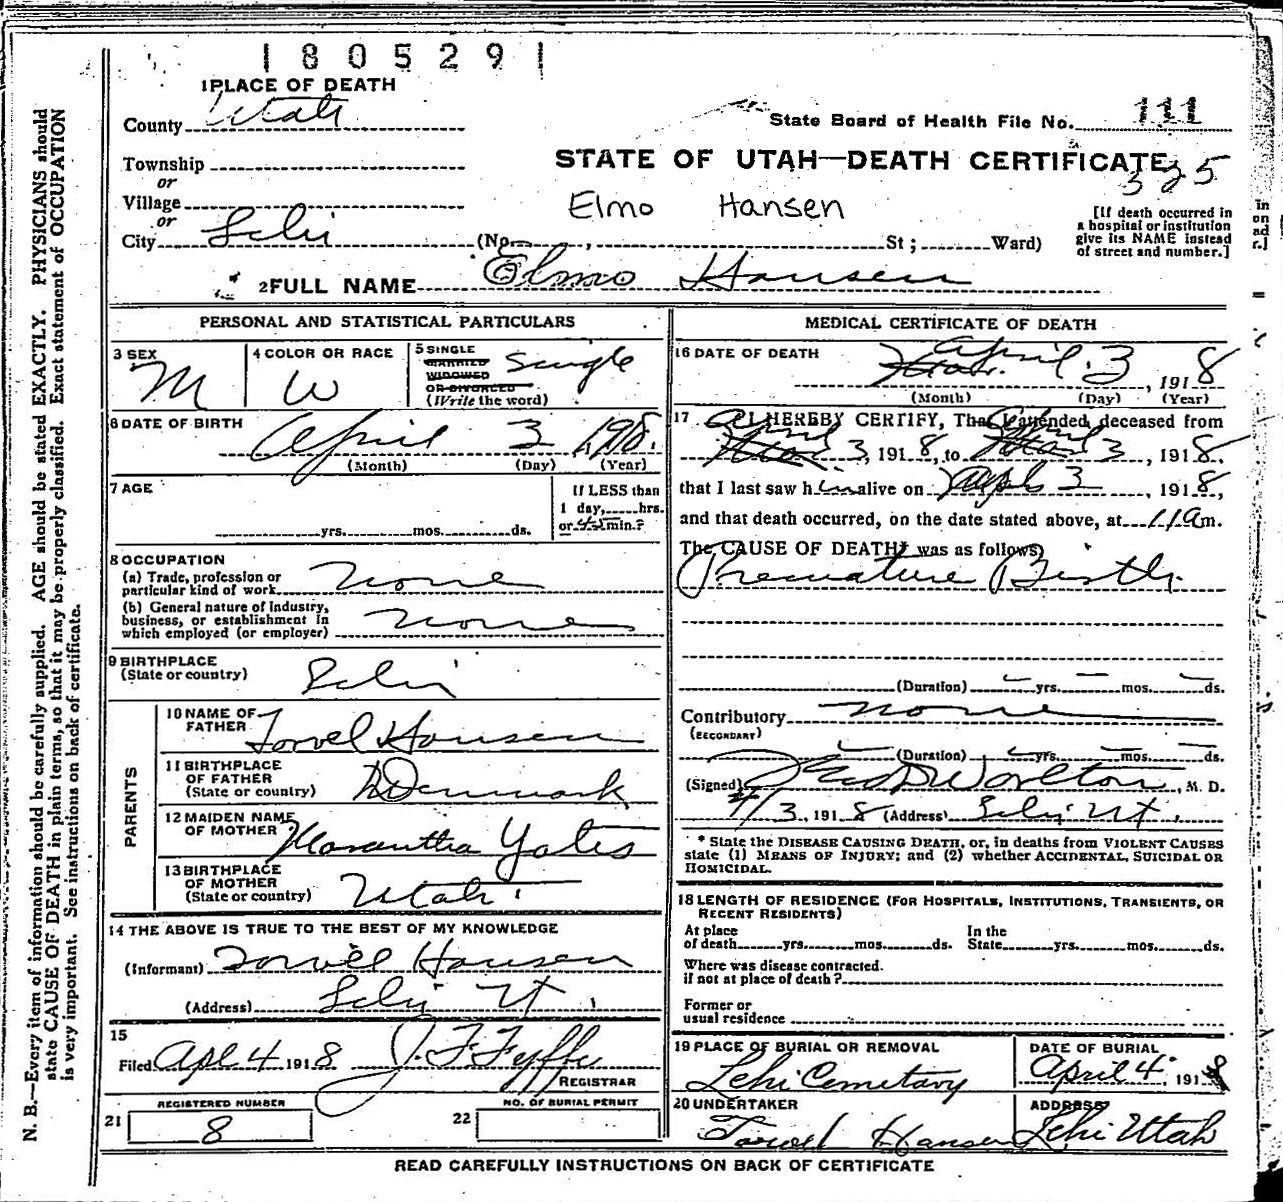 1805291
1 PLACE OF DEATH
County Utah
State Board of Health File No. 111
Township
or
STATE OF UTAH—DEATH CERTIFICATE
325
Village
or
Elmo Hansen
[If death occurred in
a hospital or institution
give its NAME instead
of street and number.]
City Lehi (No. , St; Ward)
2 FULL NAME Elmo Hansen
PERSONAL AND STATISTICAL PARTICULARS
3 SEX
M
4 COLOR OR RACE
W
5 SINGLE
MARRIED
WIDOWED
OR DIVORCED
(Write the word)
Single
6 DATE OF BIRTH
April 3, 1918.
(Month) (Day) (Year)
7 AGE
yrs. mos. ds.
If LESS than
1 day, hrs.
or 45 min.?
8 OCCUPATION
(a) Trade, profession or
particular kind of work none
(b) General nature of Industry,
business, or establishment in
which employed (or employer) none
9 BIRTHPLACE
(State or country) Lehi
PARENTS
10 NAME OF
FATHER Torvel Hansen
11 BIRTHPLACE
OF FATHER
(State or country) Denmark
12 MAIDEN NAME
OF MOTHER Marantha Yates
13 BIRTHPLACE
OF MOTHER
(State or country) Utah
14 THE ABOVE IS TRUE TO THE BEST OF MY KNOWLEDGE
(Informant) Torvel Hansen
(Address) Lehi Ut.
15
Filed Apl 4 1918 J. F. Fyffe
REGISTRAR
REGISTERED NUMBER
21 8
NO. OF BURIAL PERMIT
22
MEDICAL CERTIFICATE OF DEATH
16 DATE OF DEATH
April 3, 1918
(Month) (Day) (Year)
17 I HEREBY CERTIFY, That I attended deceased from
April 3, 1918, to April 3, 1918.
that I last saw him alive on April 3, 1918,
and that death occurred, on the date stated above, at 11 am.
The CAUSE OF DEATH* was as follows,
Premature Birth.
(Duration) yrs. mos. ds.
Contributory none
(SECONDARY)
(Duration) yrs. mos. ds.
(Signed) Worlton, M. D.
4/3, 1918 (Address) Lehi Ut.
* State the DISEASE CAUSING DEATH, or, in deaths from VIOLENT CAUSES
state (1) MEANS OF INJURY; and (2) whether ACCIDENTAL, SUICIDAL OR
HOMICIDAL.
18 LENGTH OF RESIDENCE (FOR HOSPITALS, INSTITUTIONS, TRANSIENTS, OR
RECENT RESIDENTS)
At place
of death yrs. mos. ds.
In the
State yrs. mos. ds.
Where was disease contracted.
if not at place of death?
Former or
usual residence
19 PLACE OF BURIAL OR REMOVAL
Lehi Cemetary
DATE OF BURIAL
April 4, 1918
20 UNDERTAKER
Torvel Hansen
ADDRESS
Lehi Utah
READ CAREFULLY INSTRUCTIONS ON BACK OF CERTIFICATE
N. B.—Every item of information should be carefully supplied. AGE should be stated EXACTLY. PHYSICIANS should
state CAUSE OF DEATH in plain terms, so that it may be properly classified. Exact statement of OCCUPATION
is very important. See instructions on back of certificate.